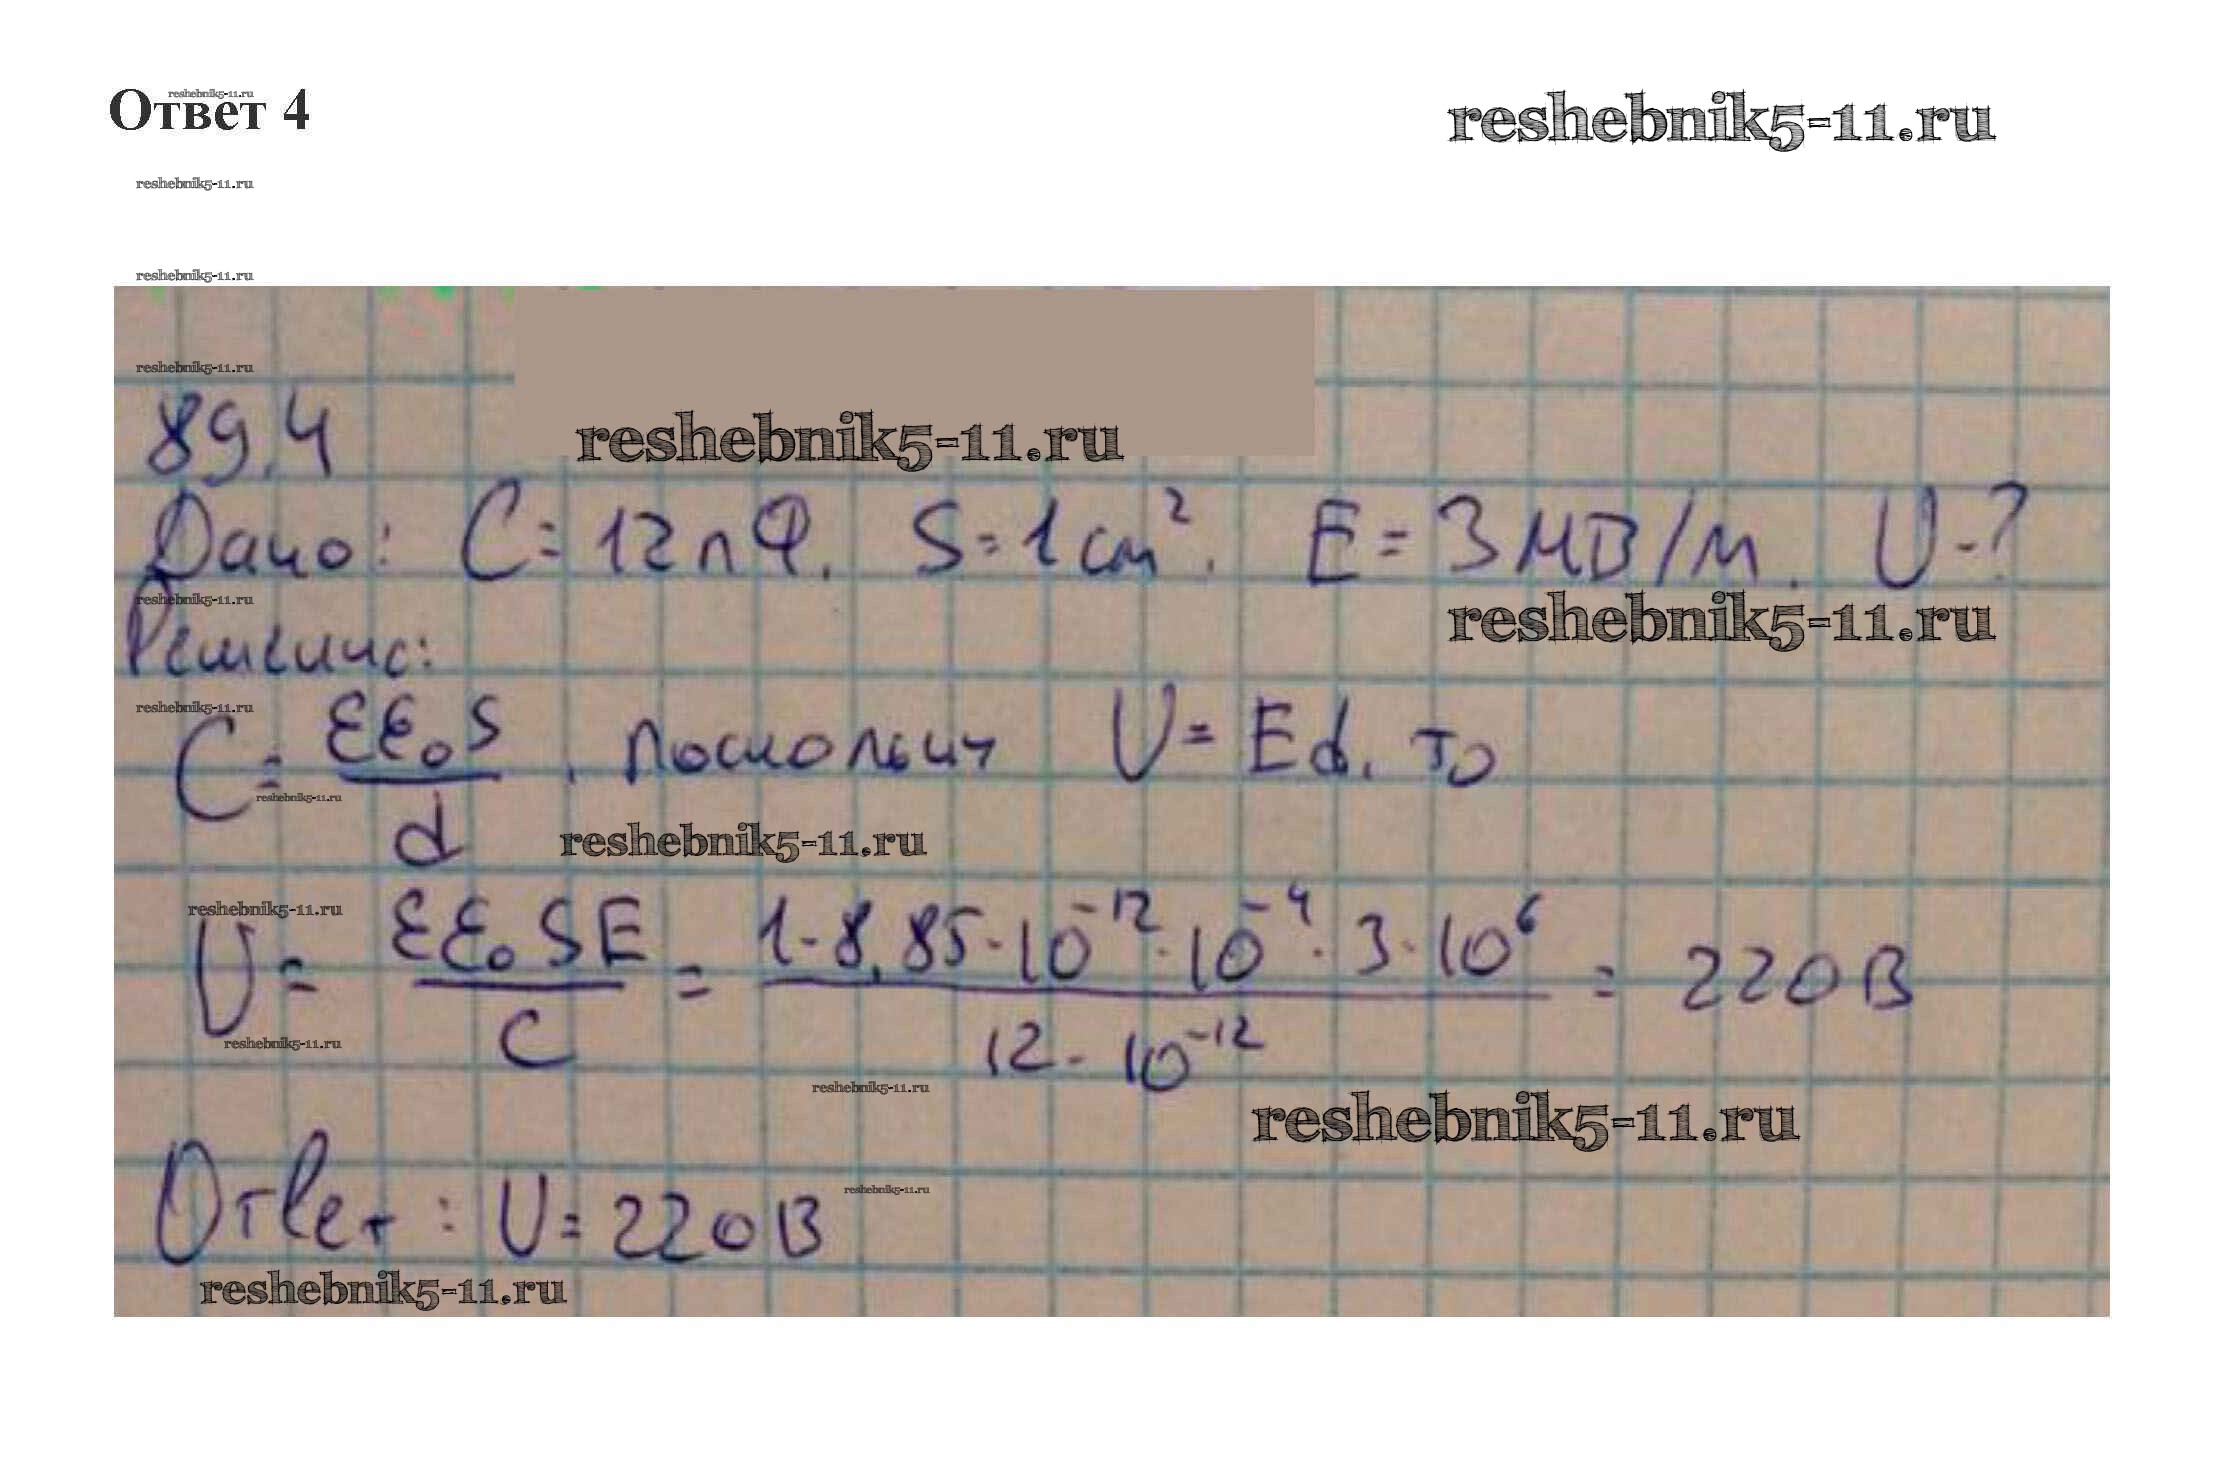 Ответ 4
reshebnik5-11.ru
reshebnik5-11.ru
reshebnik5-11.ru
reshebnik5-11.ru
reshebnik5-11.ru
89.4
reshebnik5-11.ru
Дано: C = 12 пФ. S = 1 см². E = 3 МВ/м. U - ?
reshebnik5-11.ru
reshebnik5-11.ru
Решение:
reshebnik5-11.ru
C = εε₀S / d , поскольку U = Ed, то
reshebnik5-11.ru
reshebnik5-11.ru
reshebnik5-11.ru
U = εε₀SE / C = 1 · 8,85 · 10⁻¹² · 10⁻⁴ · 3 · 10⁶ / 12 · 10⁻¹² = 220 В
reshebnik5-11.ru
reshebnik5-11.ru
reshebnik5-11.ru
reshebnik5-11.ru
Ответ: U = 220 В
reshebnik5-11.ru